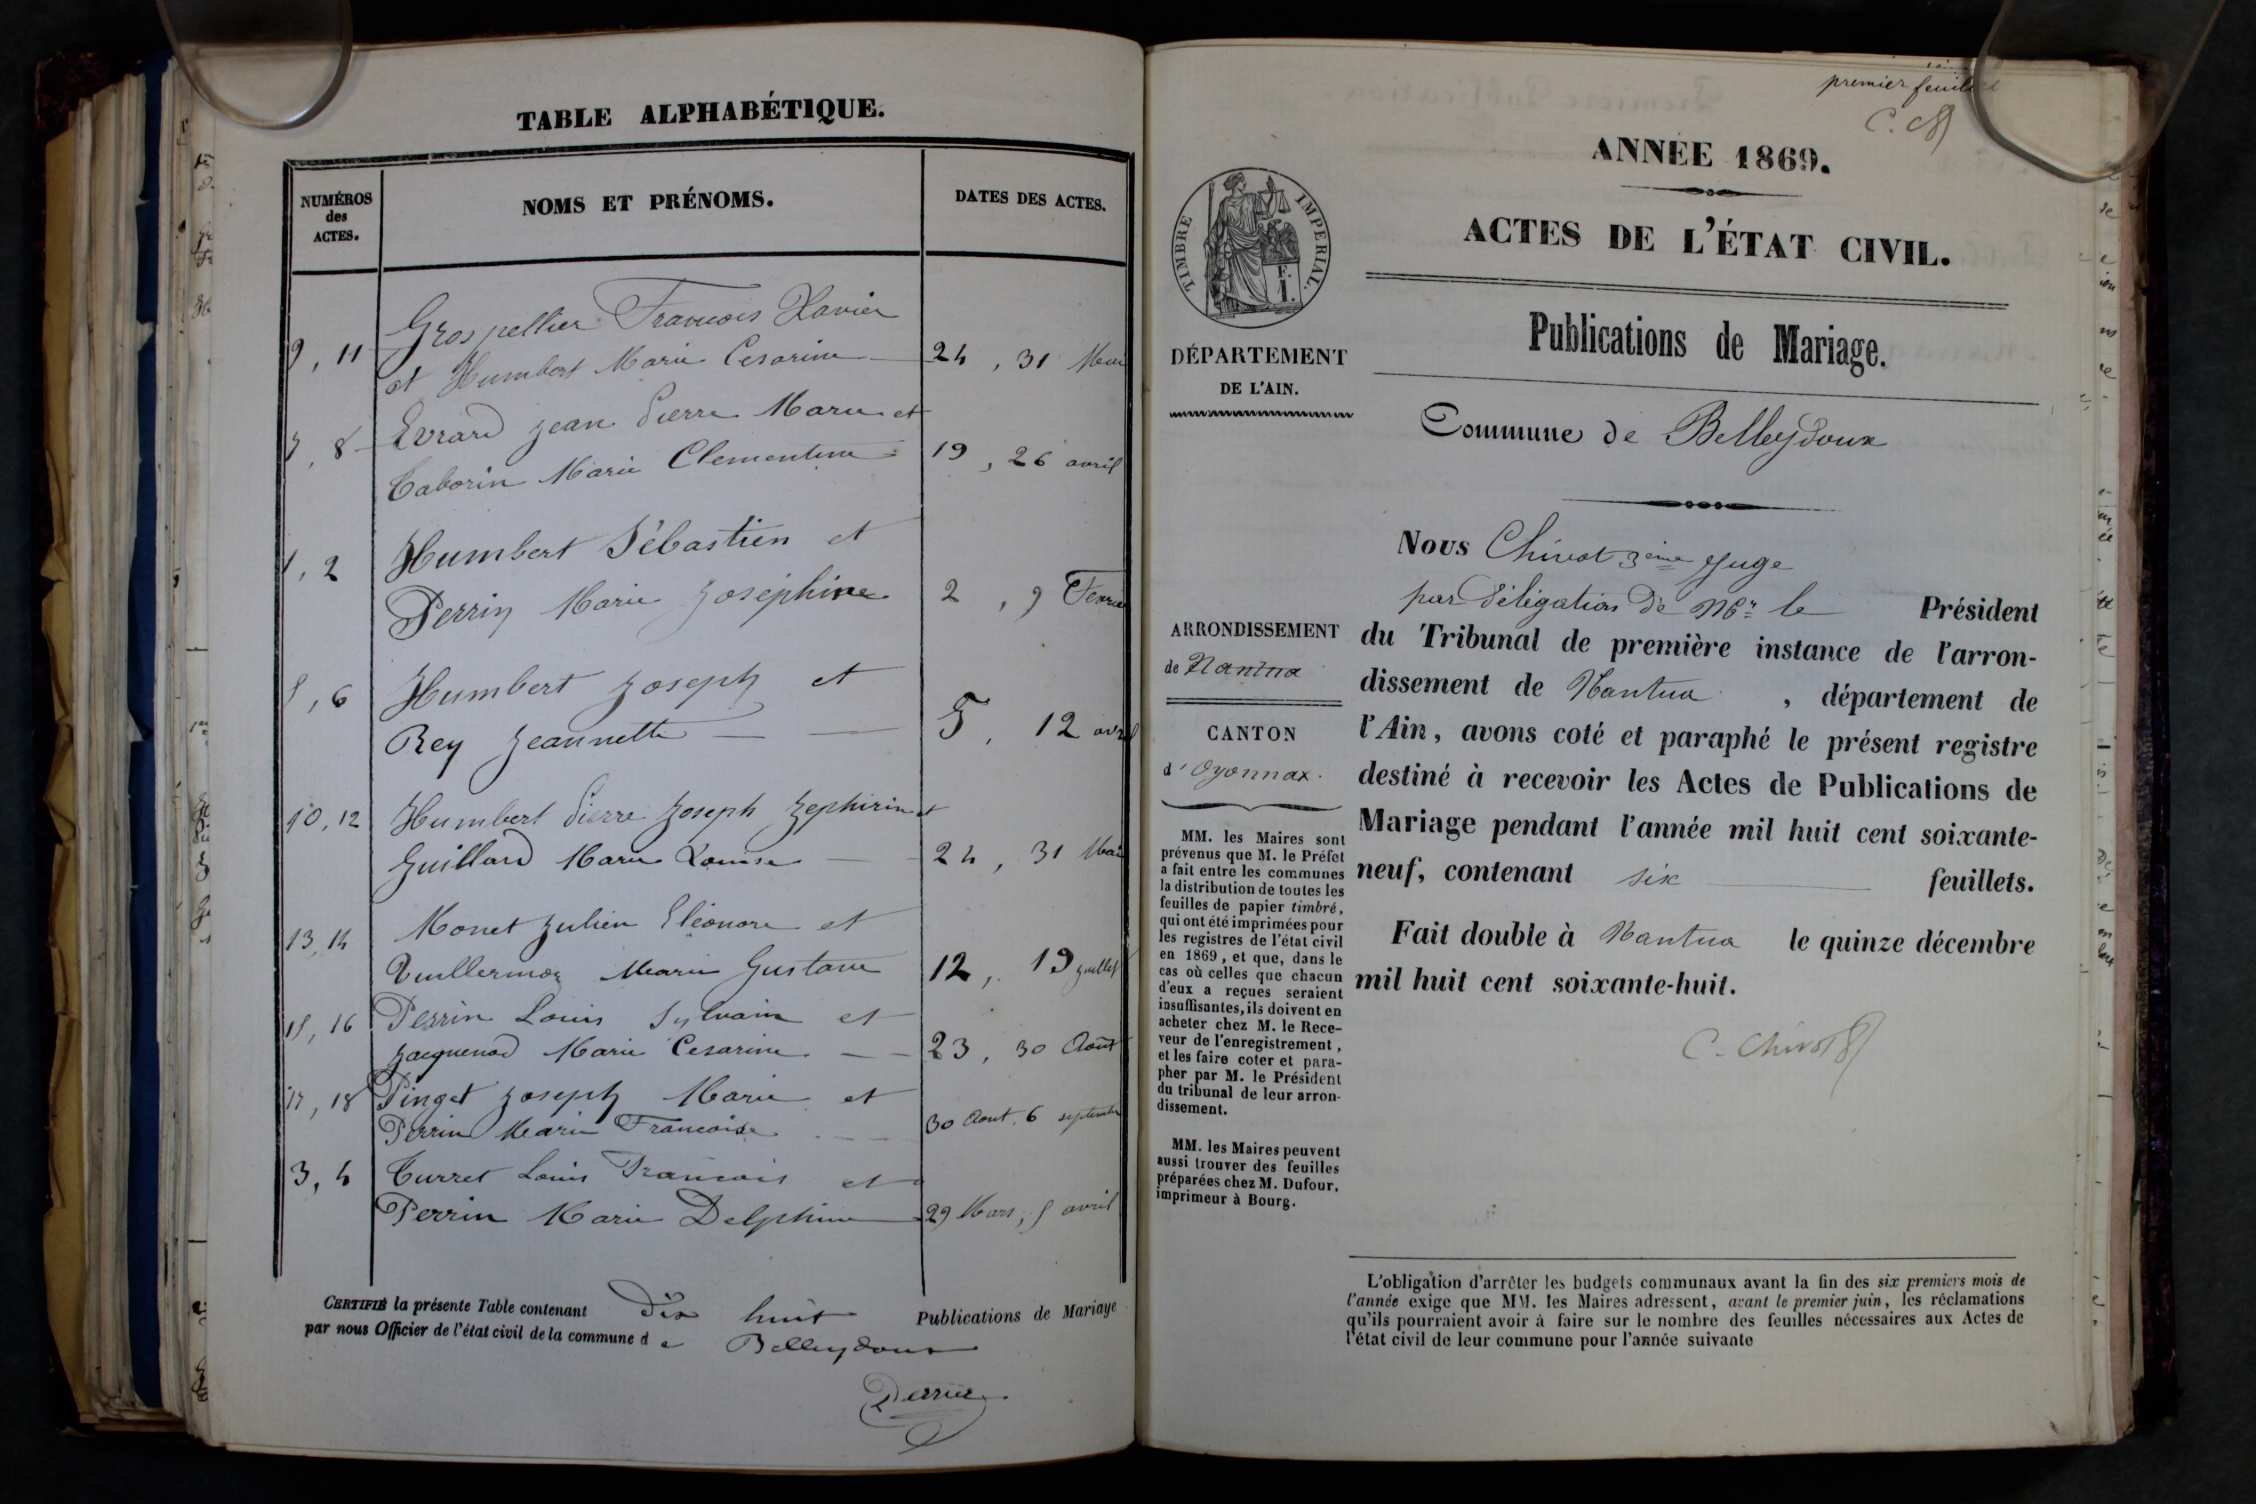 TABLE ALPHABÉTIQUE.
NUMÉROS
des
ACTES.
NOMS ET PRÉNOMS.
DATES DES ACTES.
9, 11
Grospellier Francois Xavier
et Humbert Marie Cesarine
24, 31 Mai
7, 8
Evrard Jean Pierre Marie et
Taborin Marie Clementine
19, 26 avril
1, 2
Humbert Sébastien et
Perrin Marie Joséphine
2, 9 Fevrier
5, 6
Humbert Joseph et
Rey Jeannette
5, 12 avril
10, 12
Humbert Pierre Joseph Zephirin et
Guillard Marie Louise
24, 31 Mai
13, 14
Monet Julien Eléonore et
Vuillermoz Marie Gustave
12, 19 Juillet
15, 16
Perrin Louis Sylvain et
Jacquenod Marie Cesarine
23, 30 Août
17, 18
Pinget Joseph Marie et
Perrin Marie Francoise
30 Aout, 6 septembre
3, 4
Turret Louis Francois et
Perrin Marie Delphine
29 Mars, 5 avril
CERTIFIÉ la présente Table contenant dix huit Publications de Mariage
par nous Officier de l'état civil de la commune de Belleydoux
Perrier
premier feuillet
ANNÉE 1869.
ACTES DE L'ÉTAT CIVIL.
Publications de Mariage.
Commune de Belleydoux
TIMBRE IMPERIAL.
DÉPARTEMENT
DE L'AIN.
ARRONDISSEMENT
de Nantua
CANTON
d'Oyonnax.
MM. les Maires sont
prévenus que M. le Préfet
a fait entre les communes
la distribution de toutes les
feuilles de papier timbré,
qui ont été imprimées pour
les registres de l'état civil
en 1869, et que, dans le
cas où celles que chacun
d'eux a reçues seraient
insuffisantes, ils doivent en
acheter chez M. le Rece-
veur de l'enregistrement,
et les faire coter et para-
pher par M. le Président
du tribunal de leur arron-
dissement.
MM. les Maires peuvent
aussi trouver des feuilles
préparées chez M. Dufour,
imprimeur à Bourg.
Nous Chivot 3ème Juge
par délégation de Mr le Président
du Tribunal de première instance de l'arron-
dissement de Nantua, département de
l'Ain, avons coté et paraphé le présent registre
destiné à recevoir les Actes de Publications de
Mariage pendant l'année mil huit cent soixante-
neuf, contenant six feuillets.
Fait double à Nantua le quinze décembre
mil huit cent soixante-huit.
C. Chivot
L'obligation d'arrêter les budgets communaux avant la fin des six premiers mois de
l'année exige que MM. les Maires adressent, avant le premier juin, les réclamations
qu'ils pourraient avoir à faire sur le nombre des feuilles nécessaires aux Actes de
l'état civil de leur commune pour l'année suivante